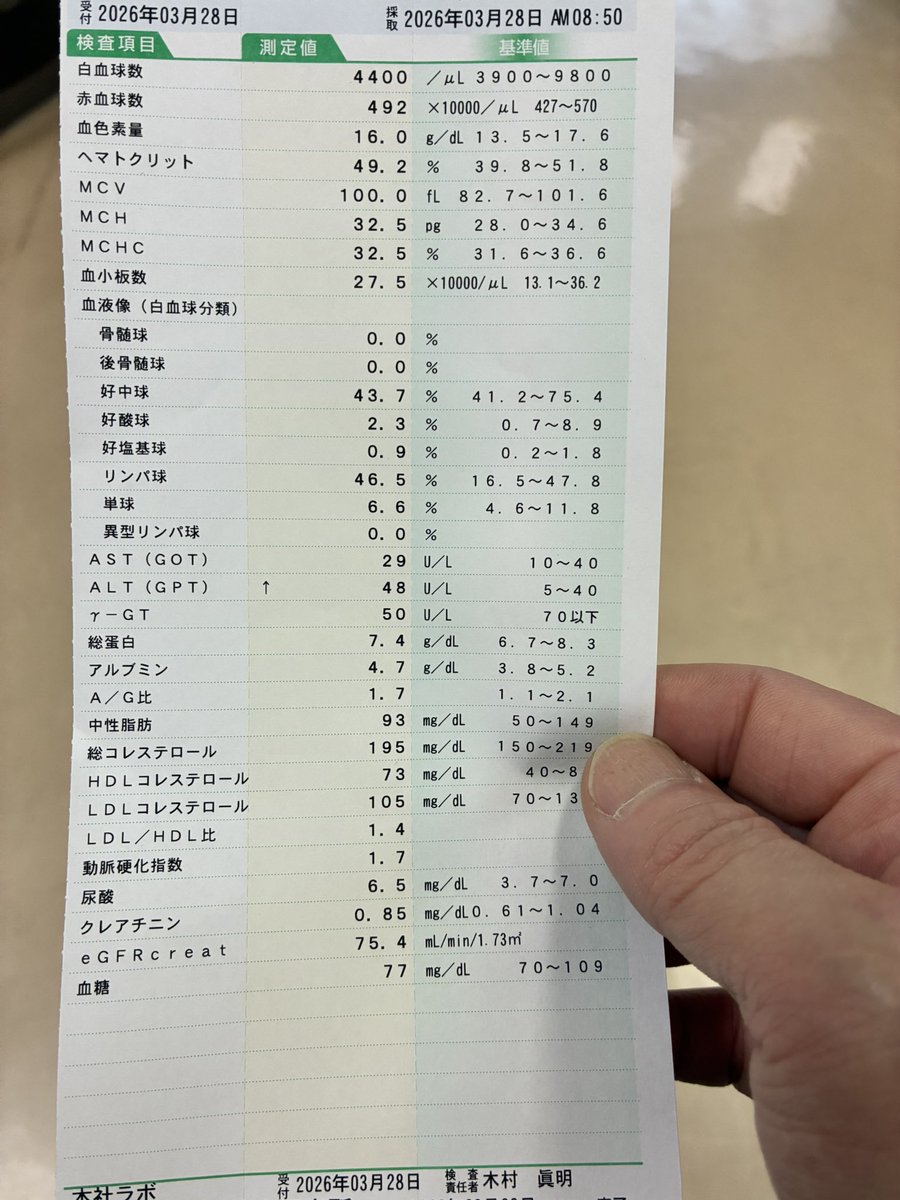 受付 2026年03月28日 採取 2026年03月28日 AM08:50
検査項目 測定値 基準値
白血球数 4400 /μL 3900～9800
赤血球数 492 ×10000/μL 427～570
血色素量 16.0 g/dL 13.5～17.6
ヘマトクリット 49.2 % 39.8～51.8
MCV 100.0 fL 82.7～101.6
MCH 32.5 pg 28.0～34.6
MCHC 32.5 % 31.6～36.6
血小板数 27.5 ×10000/μL 13.1～36.2
血液像（白血球分類）
骨髄球 0.0 %
後骨髄球 0.0 %
好中球 43.7 % 41.2～75.4
好酸球 2.3 % 0.7～8.9
好塩基球 0.9 % 0.2～1.8
リンパ球 46.5 % 16.5～47.8
単球 6.6 % 4.6～11.8
異型リンパ球 0.0 %
AST（GOT） 29 U/L 10～40
ALT（GPT） ↑ 48 U/L 5～40
γ－GT 50 U/L 70以下
総蛋白 7.4 g/dL 6.7～8.3
アルブミン 4.7 g/dL 3.8～5.2
A/G比 1.7 1.1～2.1
中性脂肪 93 mg/dL 50～149
総コレステロール 195 mg/dL 150～219
HDLコレステロール 73 mg/dL 40～8
LDLコレステロール 105 mg/dL 70～13
LDL/HDL比 1.4
動脈硬化指数 1.7
尿酸 6.5 mg/dL 3.7～7.0
クレアチニン 0.85 mg/dL 0.61～1.04
eGFRcreat 75.4 mL/min/1.73㎡
血糖 77 mg/dL 70～109
本社ラボ 受付 2026年03月28日 検査責任者 木村 眞明